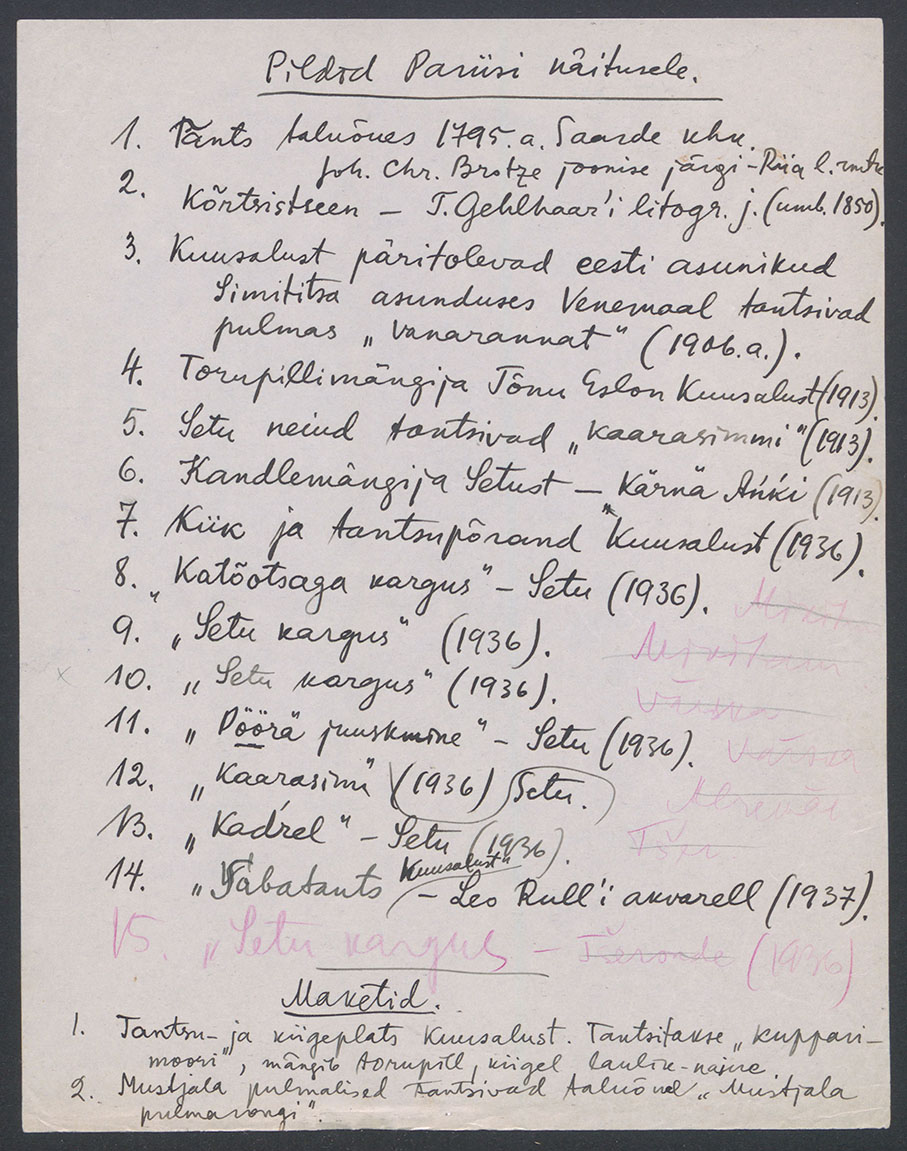 Pildid Pariisi näitusele.
1. Tants taluõues 1795.a. Saarde khk.
Joh. Chr. Brotze joonise järgi - Riia l.
2. Kõrtsistseen – T. Gehlhaar'i litogr. j. (umb. 1850).
3. Kuusalust päritolevad eesti asunikud
Simititsa asunduses Venemaal tantsivad
pulmas „vanarannat" (1906.a.).
4. Torupillimängija Tõnu Eslon Kuusalust (1913).
5. Setu neiud tantsivad „kaarasimmi" (1913).
6. Kandlemängija Setust – Kärnä Ańki (1913).
7. Kiik ja tantsupõrand Kuusalust (1936).
8. „Katõotsaga kargus" – Setu (1936).
9. „Setu kargus" (1936). Mikitam
10. „Setu kargus" (1936). Värska
11. „Pöörä juuskmine" – Setu (1936). Värska
12. „Kaarasim" (1936) Setu.
13. „Kadrel" – Setu (1936).
14. „Tabatants Kuusalust" – Leo Rull'i akvarell (1937).
15. „Setu kargus – (1936)
Maketid.
1. Tantsu- ja kiigeplats Kuusalust. Tantsitakse „kuppari-
moori", mängib torupill, kiigel laulik-naine.
2. Mustjala pulmalised tantsivad taluõuel „Mustjala
pulmarongi".